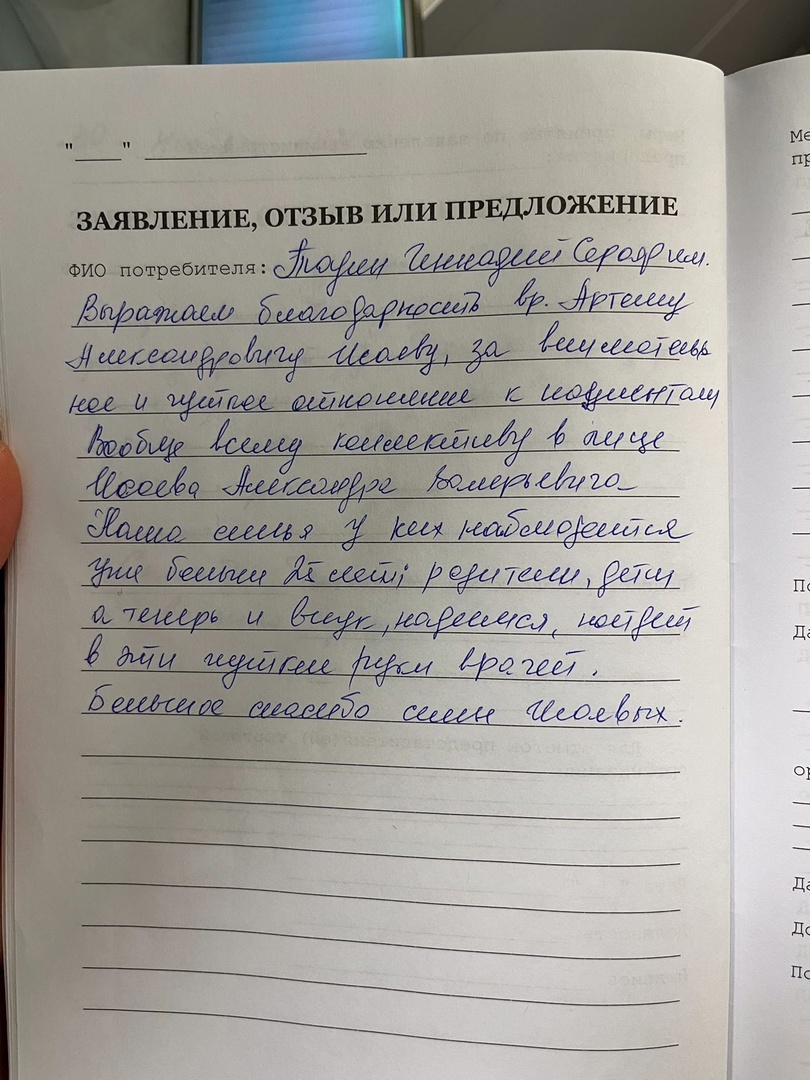 "____" ____________
ЗАЯВЛЕНИЕ, ОТЗЫВ ИЛИ ПРЕДЛОЖЕНИЕ
ФИО потребителя: Геннадий Серафим.
Выражаем благодарность вр. Артему
Александровичу Исаеву, за вниматель
ное и чуткое отношение к пациентам
Вообще всему коллективу в лице
Исаева Александра Валерьевича
Наша семья у них наблюдается
уже больше 25 лет; родители, дети
а теперь и внук, надеемся, пойдет
в эти чуткие руки врачей.
Большое спасибо семьи Исаевых.
Ме
пр
По
Да
ор
Да
До
По